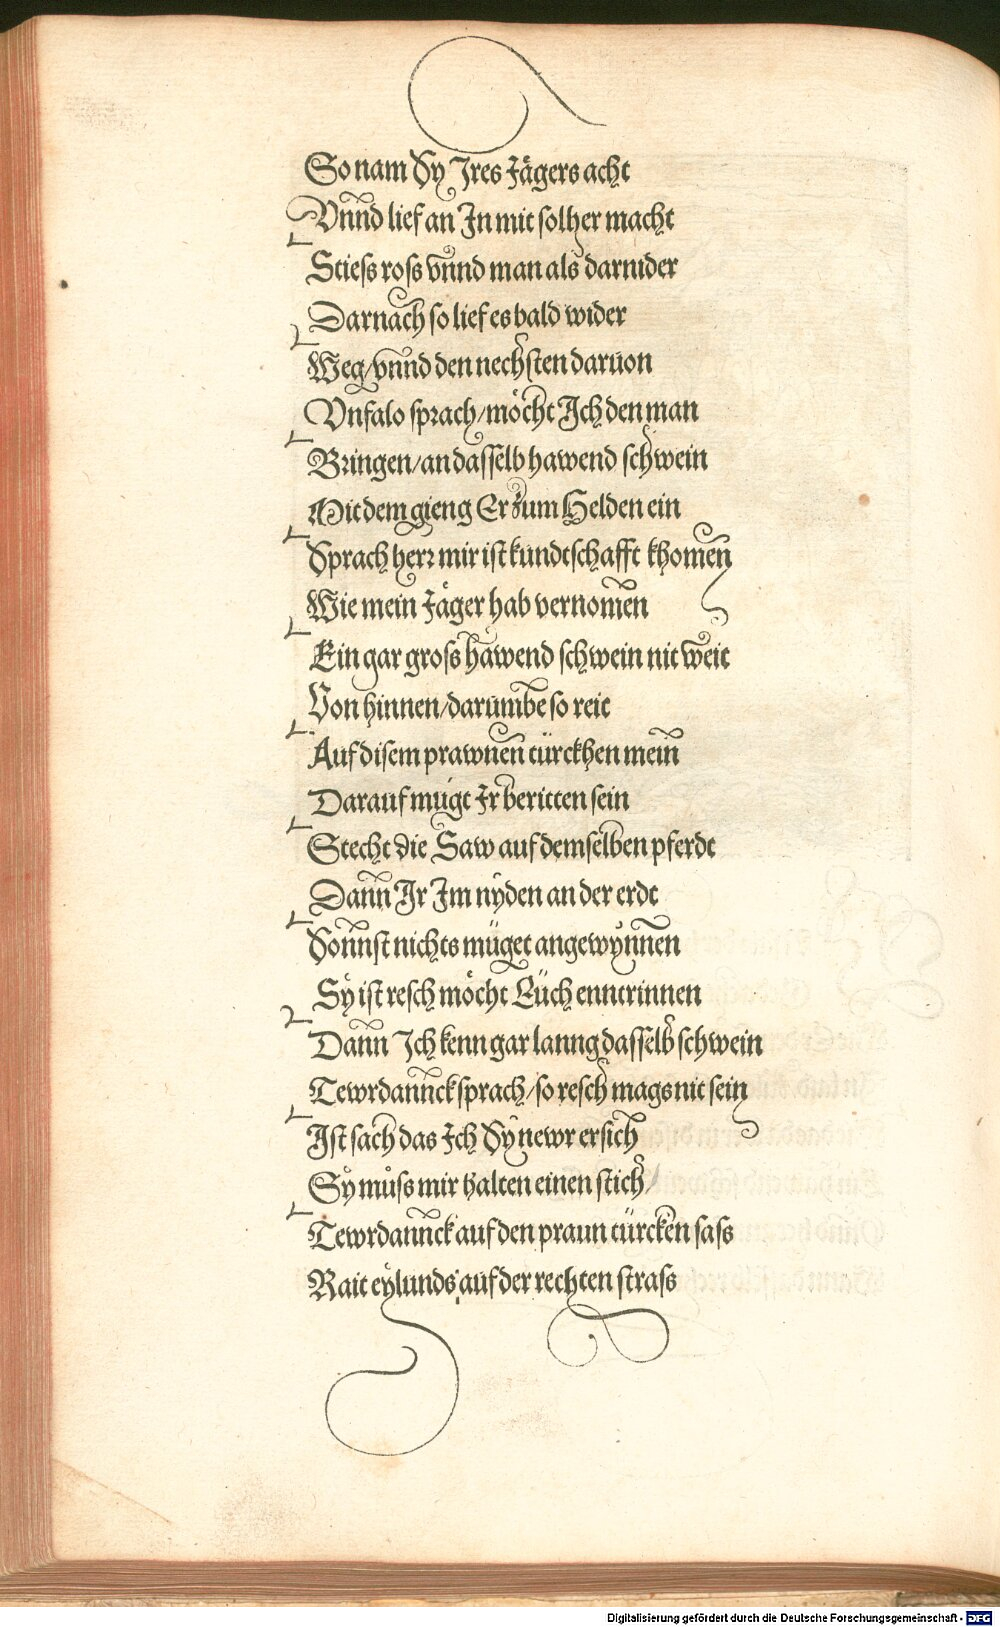 So nam Sy Ires Jägers acht
Vnnd lief an In mit solher macht
Stiess ross vnnd man als darnider
Darnach so lief es bald wider
Weg/vnnd den nechsten daruon
Vnfalo sprach/möcht Ich den man
Bringen/an dasselb hawend schwein
Mit dem gieng Er zum Helden ein
Sprach herr mir ist kundtschafft khomen
Wie mein Jäger hab vernomen
Ein gar gross hawend schwein nit weit
Von hinnen/darumbe so reit
Auf disem prawnen türckhen mein
Darauf mügt Ir beritten sein
Stecht die Saw auf demselben pferdt
Dann Ir Im nyden an der erdt
Sonnst nichts müget angewynnen
Sÿ ist resch möcht Eüch enntrinnen
Dann Ich kenn gar lanng dasselb schwein
Tewrdannck sprach/so resch mags nit sein
Ist sach das Ich Sÿ newr ersich
Sÿ muͦss mir halten einen stich
Tewrdannck auf den praun türcken sass
Rait eylunds auf der rechten strass
Digitalisierung gefördert durch die Deutsche Forschungsgemeinschaft - DFG